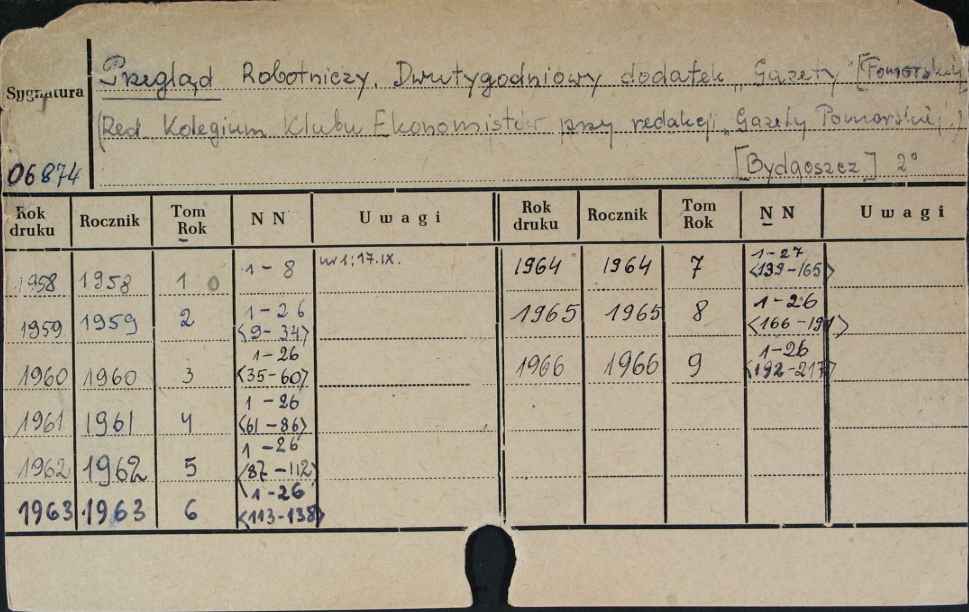 Przegląd Robotniczy. Dwutygodniowy dodatek „Gazety [Pomorskiej]
(Red. Kolegium Klubu Ekonomistów przy redakcji „Gazety Pomorskiej")
[Bydgoszcz] 2°
Sygnatura
06874
Rok druku Rocznik Tom Rok N N Uwagi Rok druku Rocznik Tom Rok N N Uwagi
1958 1958 1 1-8 nr 1; 17.IX. 1964 1964 7 1-27 <139-165>
1959 1959 2 1-26 <9-34> 1965 1965 8 1-26 <166-191>
1960 1960 3 1-26 <35-60> 1966 1966 9 1-26 <192-217>
1961 1961 4 1-26 <61-86>
1962 1962 5 1-26 <87-112>
1963 1963 6 1-26 <113-138>